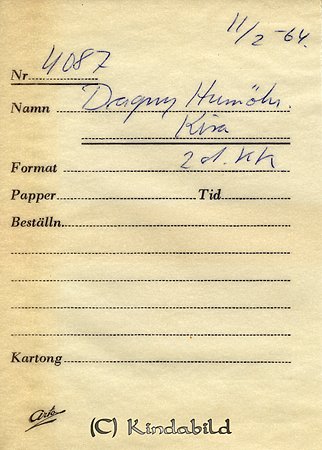 11/2-64.
Nr 4087
Namn Dagny Humöhr.
Kisa
Format 2 d. KK
Papper Tid
Beställn.
Kartong
Ark
(C) Kindabild